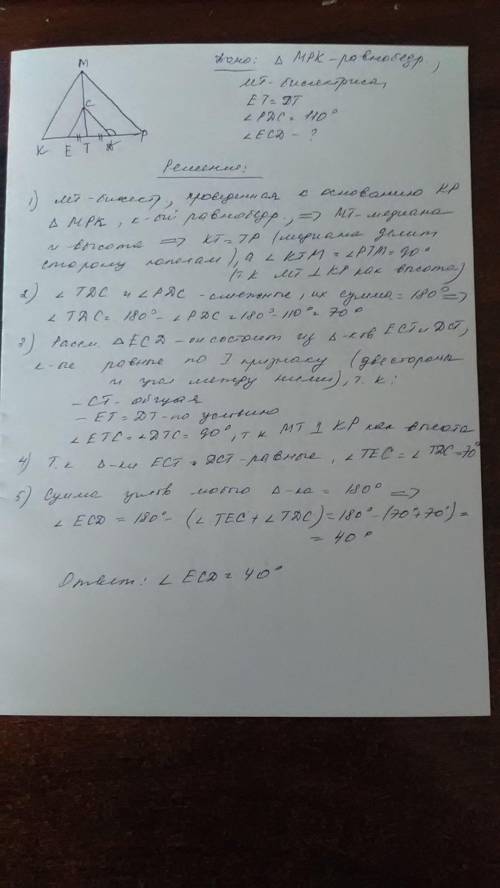 M
C
K E T P
Дано: Δ MPK - равнобедр,
MT - биссектриса,
ET = DT
∠PDC = 110°
∠ECD - ?
Решение:
1) MT - биссект, проведенная к основанию KP
Δ MPK, к-ый равнобедр., => MT - медиана
и высота => KT = TP (медиана делит
сторону пополам), а ∠KTM = ∠PTM = 90°
(т.к MT ⊥ KP как высота)
2) ∠TDC и ∠PDC - смежные, их сумма = 180° =>
∠TDC = 180° - ∠PDC = 180° - 110° = 70°
3) Рассм. Δ ECD - он состоит из Δ-ков ECT и DCT,
к-ые равные по I признаку (две стороны
и угол между ними), т.к:
- CT - общая
- ET = DT - по условию
∠ETC = ∠DTC = 90°, т.к MT ⊥ KP как высота
4) Т.к Δ-ки ECT и DCT - равные, ∠TEC = ∠TDC = 70°
5) Сумма углов любого Δ-ка = 180° =>
∠ECD = 180° - (∠TEC + ∠TDC) = 180° - (70° + 70°) =
= 40°
Ответ: ∠ECD = 40°